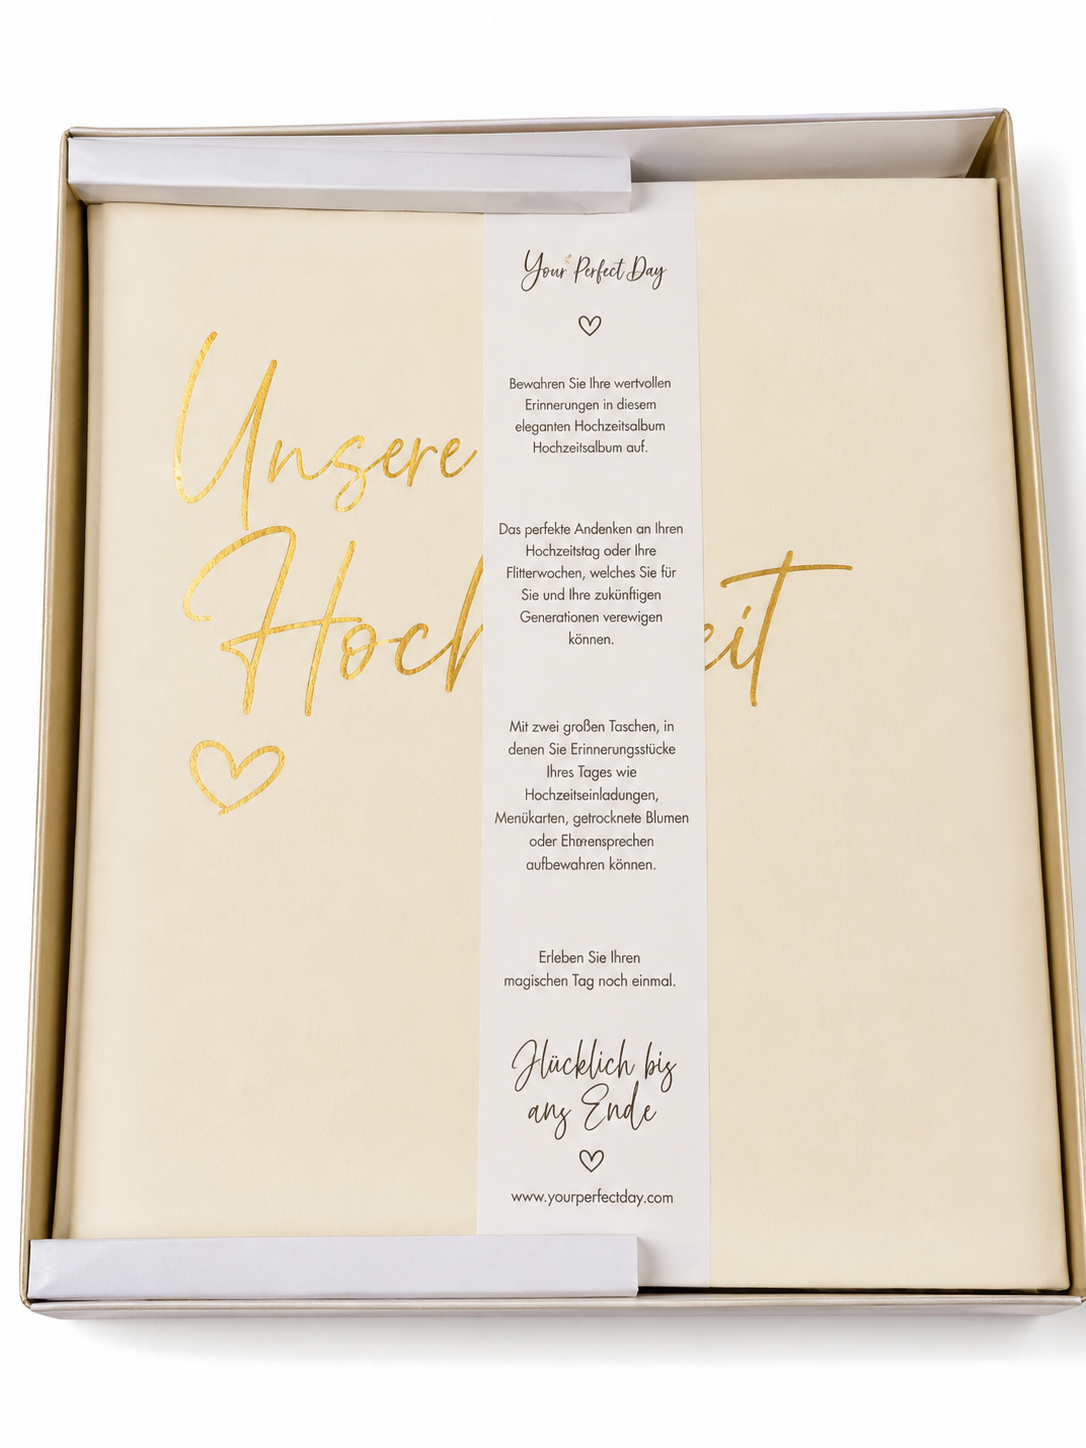 Unsere
Hoch eit
Your Perfect Day
Bewahren Sie Ihre wertvollen
Erinnerungen in diesem
eleganten Hochzeitsalbum
Hochzeitsalbum auf.
Das perfekte Andenken an Ihren
Hochzeitstag oder Ihre
Flitterwochen, welches Sie für
Sie und Ihre zukünftigen
Generationen verewigen
können.
Mit zwei großen Taschen, in
denen Sie Erinnerungsstücke
Ihres Tages wie
Hochzeitseinladungen,
Menükarten, getrocknete Blumen
oder
aufbewahren können.
Erleben Sie Ihren
magischen Tag noch einmal.
Glücklich bis
ans Ende
www.yourperfectday.com